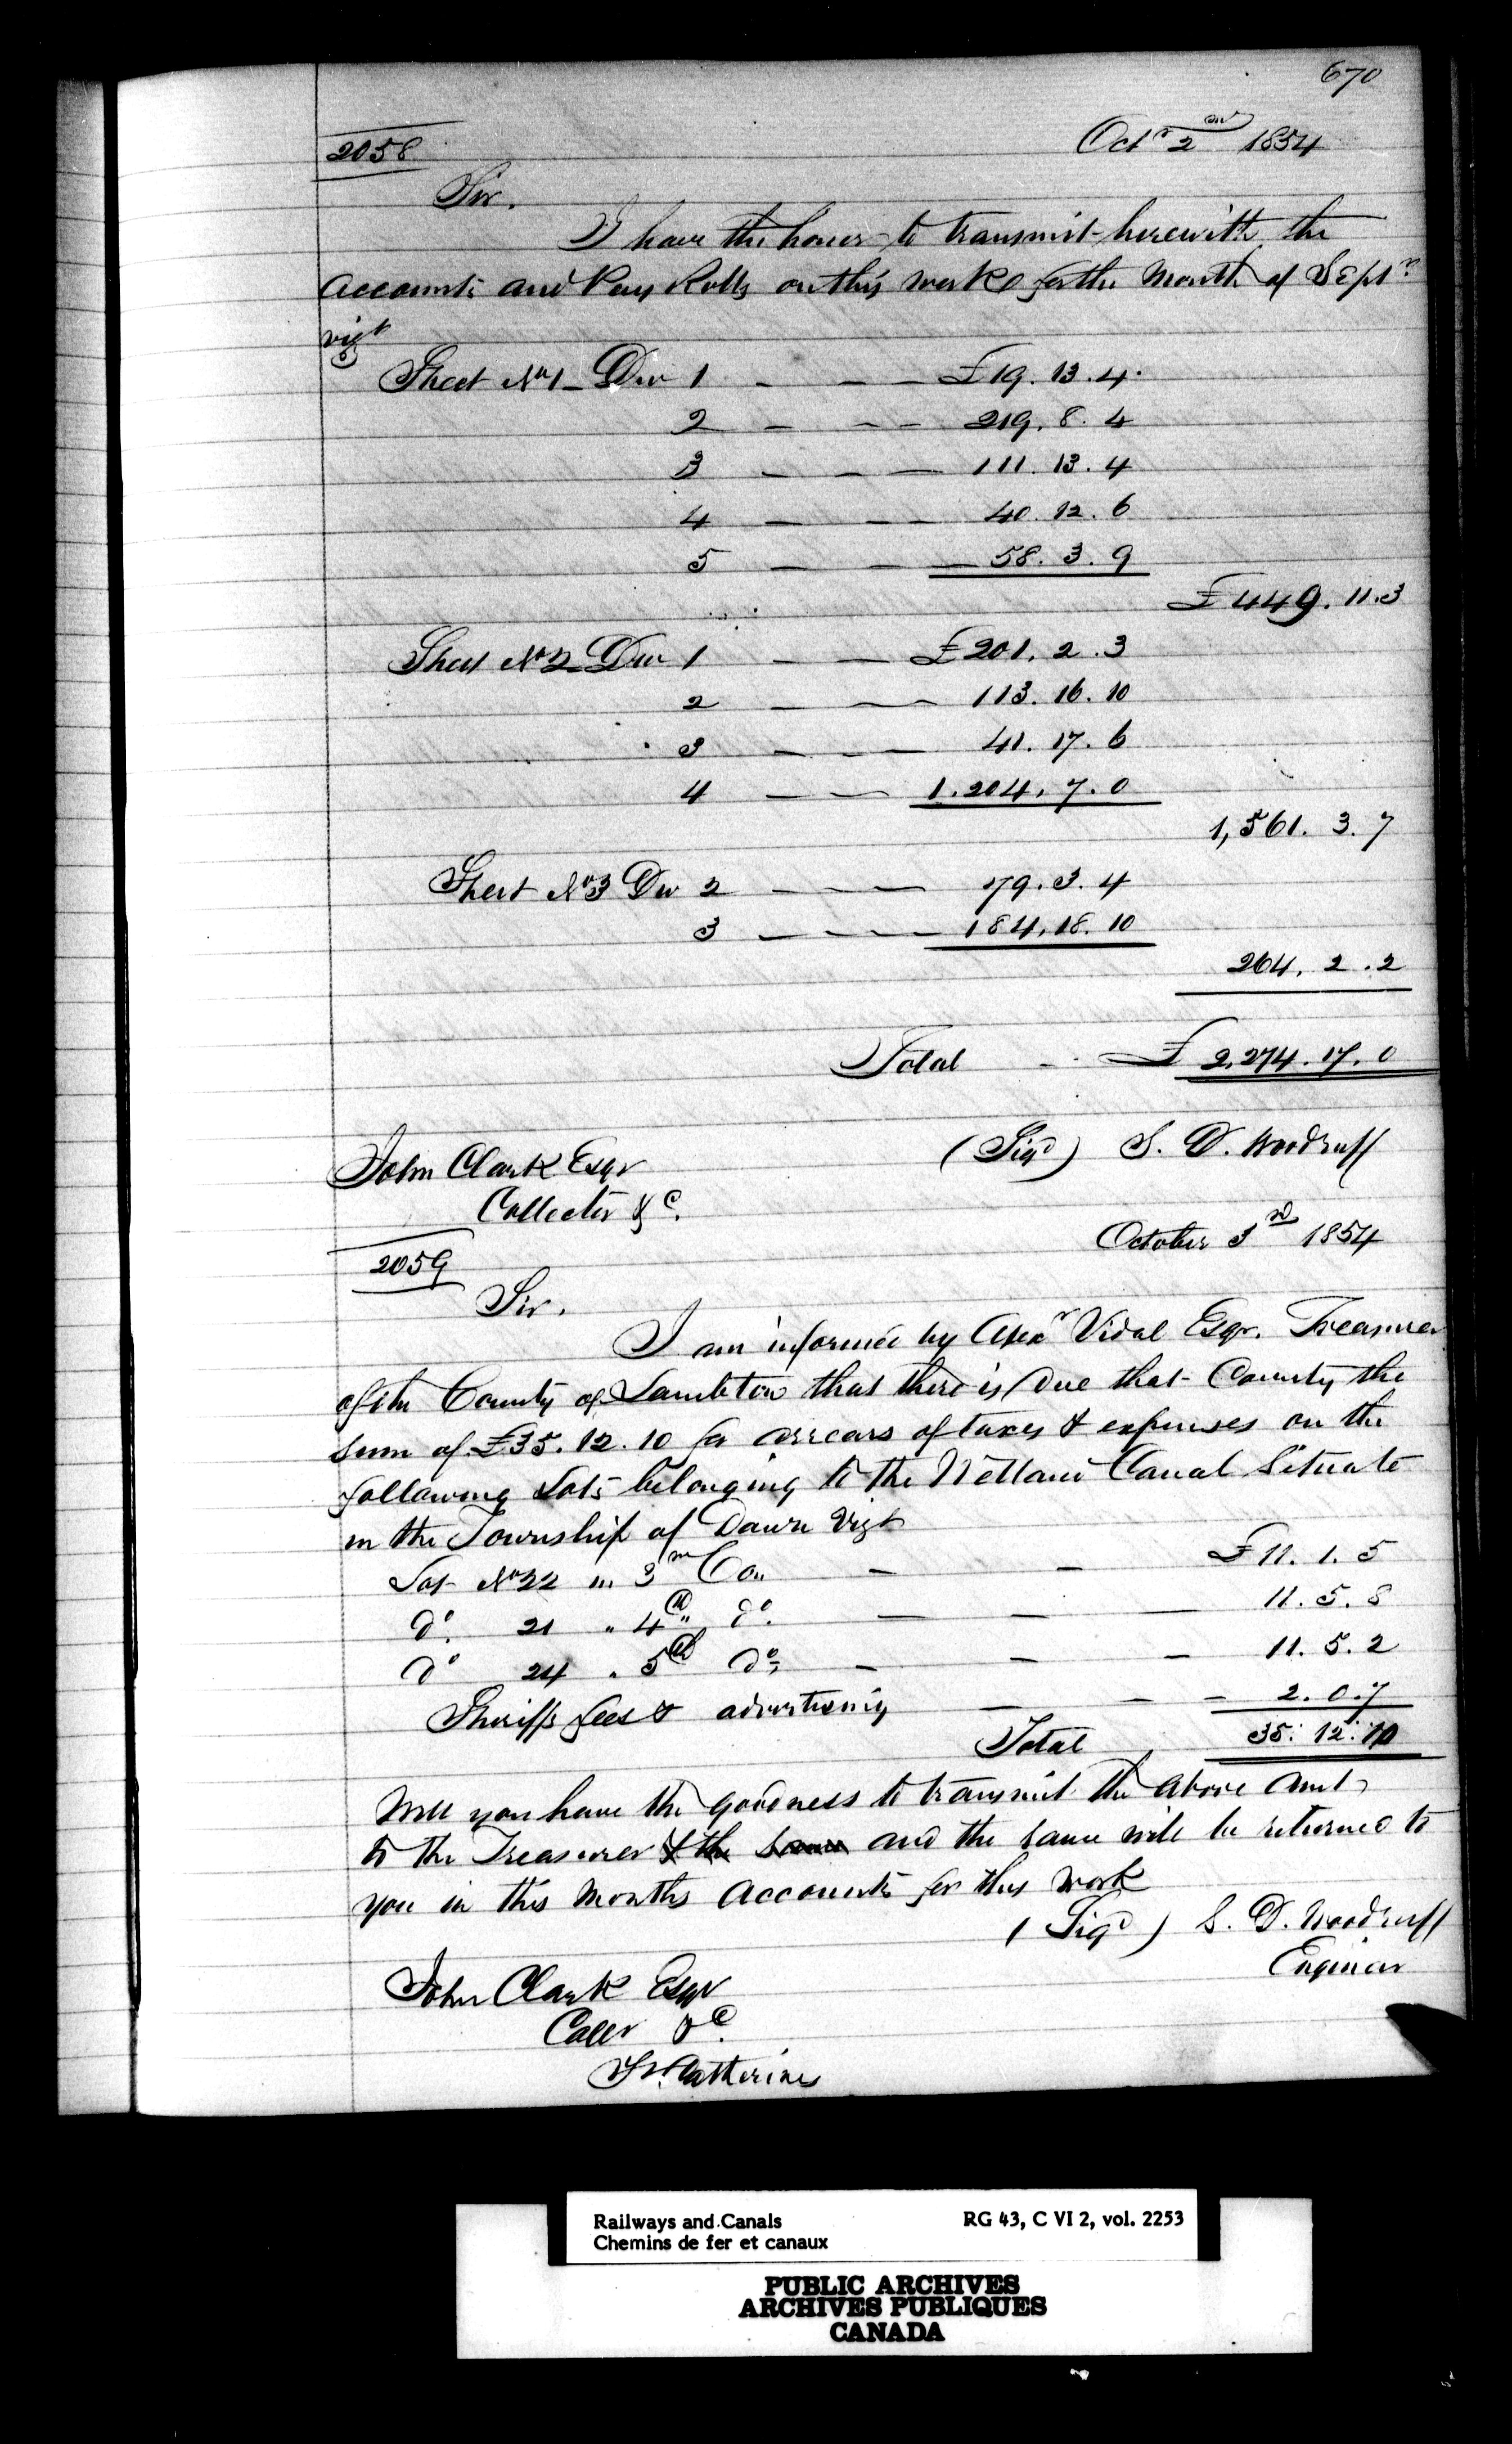 670
2058
Octr 2nd 1854
Sir.
I have the honor to transmit herewith the
accounts and Pay Rolls on this work for the Month of Septr
vizt
Sheet No 1 - Div 1 - - - £19. 13. 4.
2 - - - 219. 8. 4
3 - - - 111. 13. 4
4 - - - 40. 12. 6
5 - - - 58. 3. 9
£449. 11. 3
Sheet No 2 Div 1 - - £201. 2. 3
2 - - - 113. 16. 10
3 - - - 41. 17. 6
4 - - - 1.204. 7. 0
1,561. 3. 7
Sheet No 3 Div 2 - - - 79. 3. 4
3 - - - 184. 18. 10
264. 2. 2
Total - - £ 2,274. 17. 0
(Sigd) S. D. Woodruff
John Clark Esqr
Collector &c.
October 3rd 1854
2059
Sir.
I am informed by Alexr Vidal Esqr. Treasurer
of the County of Lambton that there is due that County the
sum of £35. 12. 10 for arrears of taxes & expenses on the
following Lots belonging to the Welland Canal Situate
in the Township of Dawn Vizt
Lot No 22 in 3rd Con - - £11. 1. 5
do. 21 " 4th " do. - - - 11. 5. 8
do 24 " 5th do - - - 11. 5. 2
Sheriffs fees & advertising - - - 2. 0. 7
Total 35: 12: 10
Will you have the goodness to transmit the above amt
to the Treasurer & the same and the same will be returned to
you in this Months Accounts for this work
(Sigd) S. D. Woodruff
Engineer
John Clark Esqr
Collr &c.
St. Catherines
Railways and Canals RG 43, C VI 2, vol. 2253
Chemins de fer et canaux
PUBLIC ARCHIVES
ARCHIVES PUBLIQUES
CANADA